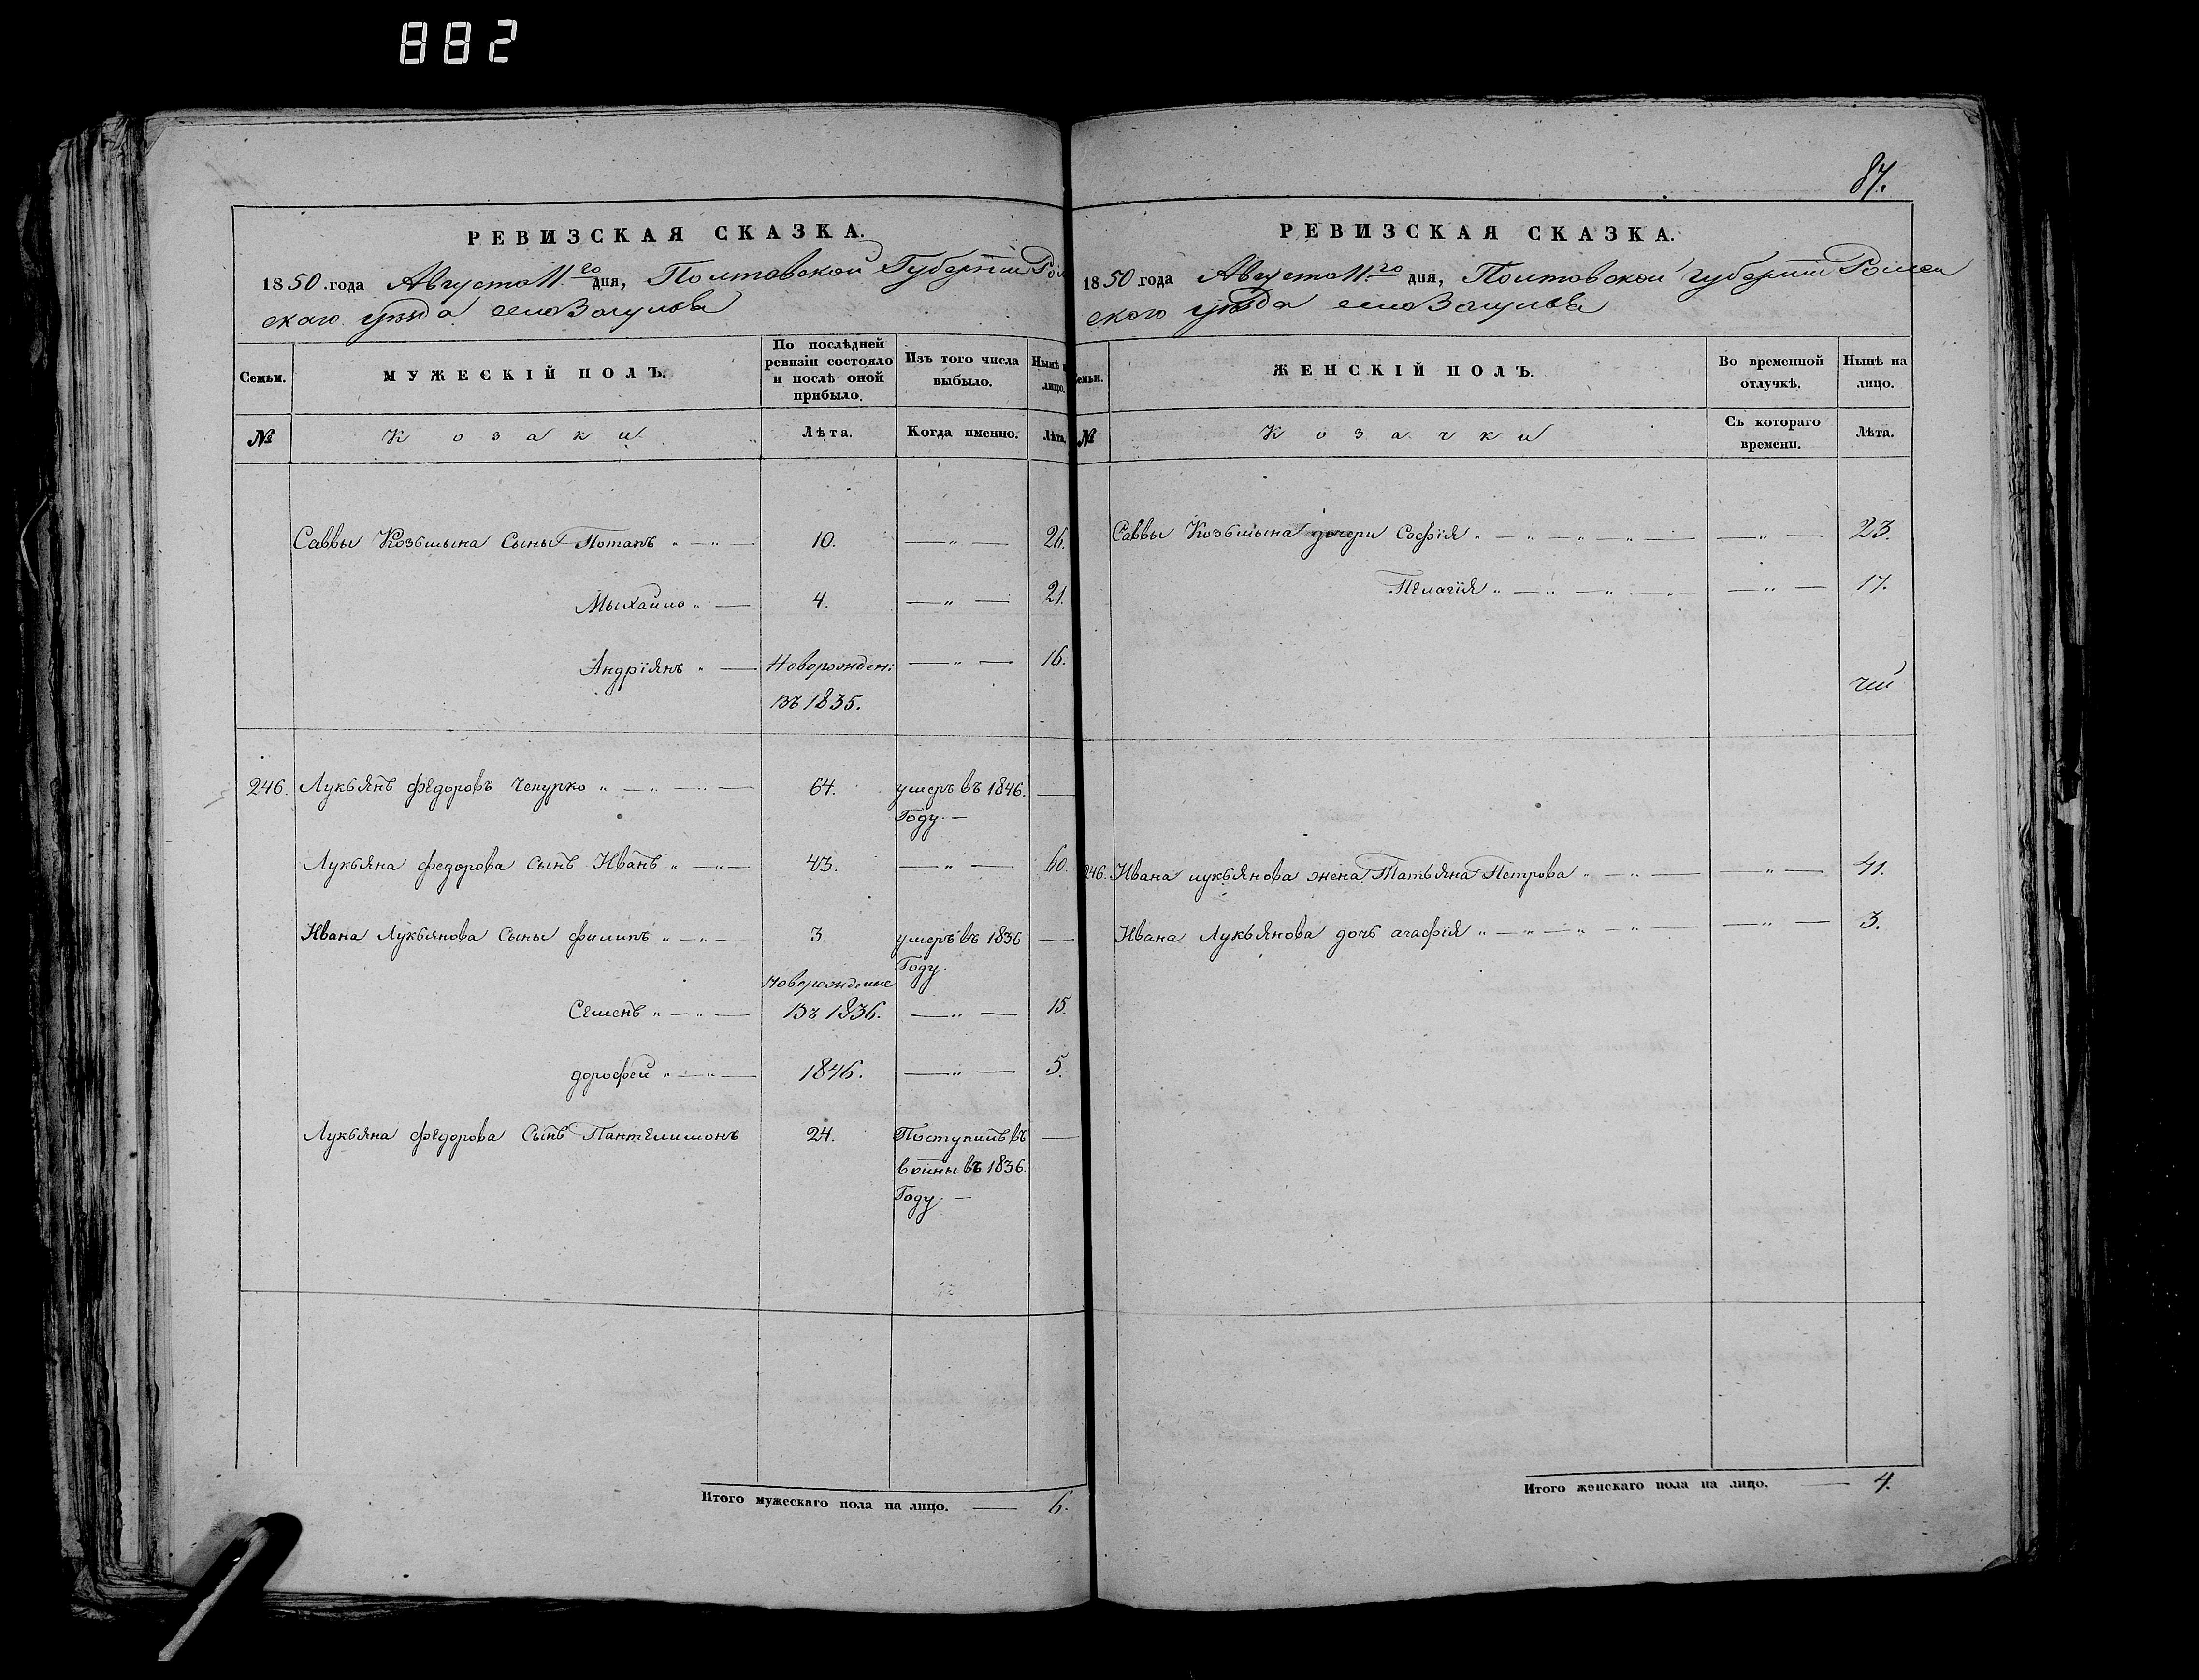 882
87.
РЕВИЗСКАЯ СКАЗКА.
1850 года Августа 11го дня, Полтавской Губернiи Ром
скаго уѣзда село
Семьи.
МУЖЕСКІЙ ПОЛЪ.
По послѣдней
ревизіи состояло
и послѣ оной
прибыло.
Изъ того числа
выбыло.
Нынѣ н
лицо.
№
Козаки
Лѣта.
Когда именно.
Лѣта.
Саввы Козьмына Сыны Потапъ „ — „ — 10. — „ — 26.
Мыхайло „ — 4. — „ — 21.
Андрїянъ „ — Новорожден: — „ — 16.
въ 1835.
246. Лукьянъ Федоровъ Чепурко „ — „ — „ — 64. умеръ въ 1846. —
Году. —
Лукьяна федорова сынъ Иванъ „ — „ — 43. — „ — 60.
Ивана Лукьянова Сыны филипъ „ — „ — 3. умеръ въ 1836 —
Году.
Новорожденые
Семенъ „ — „ — въ 1836. — „ — 15.
дорофей „ — „ — 1846. — „ — 5.
Лукьяна федорова Сынъ Пантелимонъ 24. Поступилъ въ —
войны въ 1836.
Году —
Итого мужескаго пола на лицо. — 6.
РЕВИЗСКАЯ СКАЗКА.
1850 года Августа 11го дня, Полтовской губернiи Ромен
ского уѣзда село
Семьи.
ЖЕНСКІЙ ПОЛЪ.
Во временной
отлучкѣ.
Нынѣ на
лицо.
№
Козачки
Съ котораго
времени.
Лѣта.
Саввы Козьмына дочери Софїя „ — „ — „ — „ — — „ — 23.
Пелагїя „ — „ — „ — „ — — „ — 17.
246. Ивана лукьянова жена Татьяна Петрова „ — „ — — „ — 41.
Ивана Лукьянова дочь агафїя „ — „ — „ — „ — — „ — 3.
Итого женскаго пола на лицо. — 4.